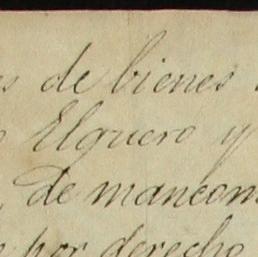 de bienes
Elguero y
de mancom
por derecho